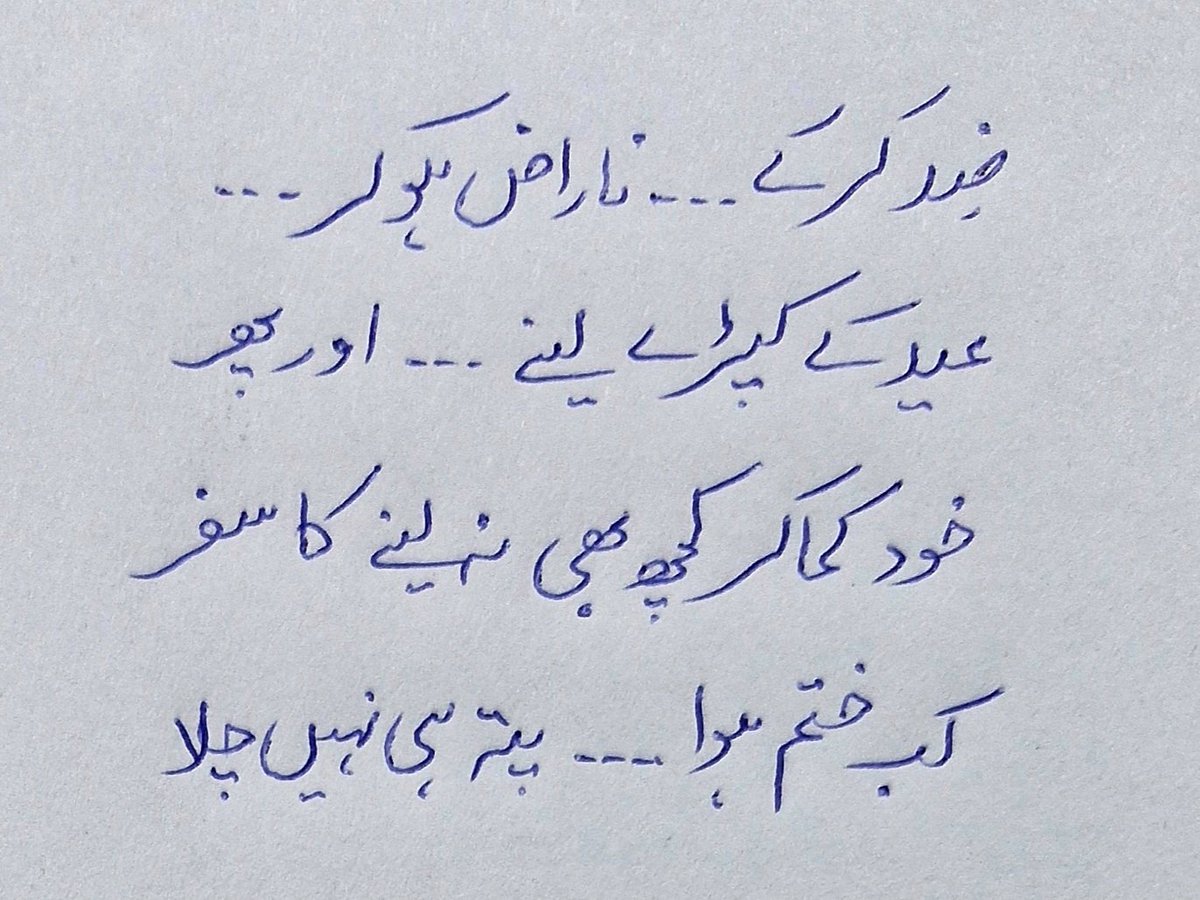 ضد کرکے --- ناراض ہوکر ---
عید کے کپڑے لینے --- اور پھر
خود کما کر کچھ بھی نہ لینے کا سفر
کب ختم ہوا --- پتہ ہی نہیں چلا